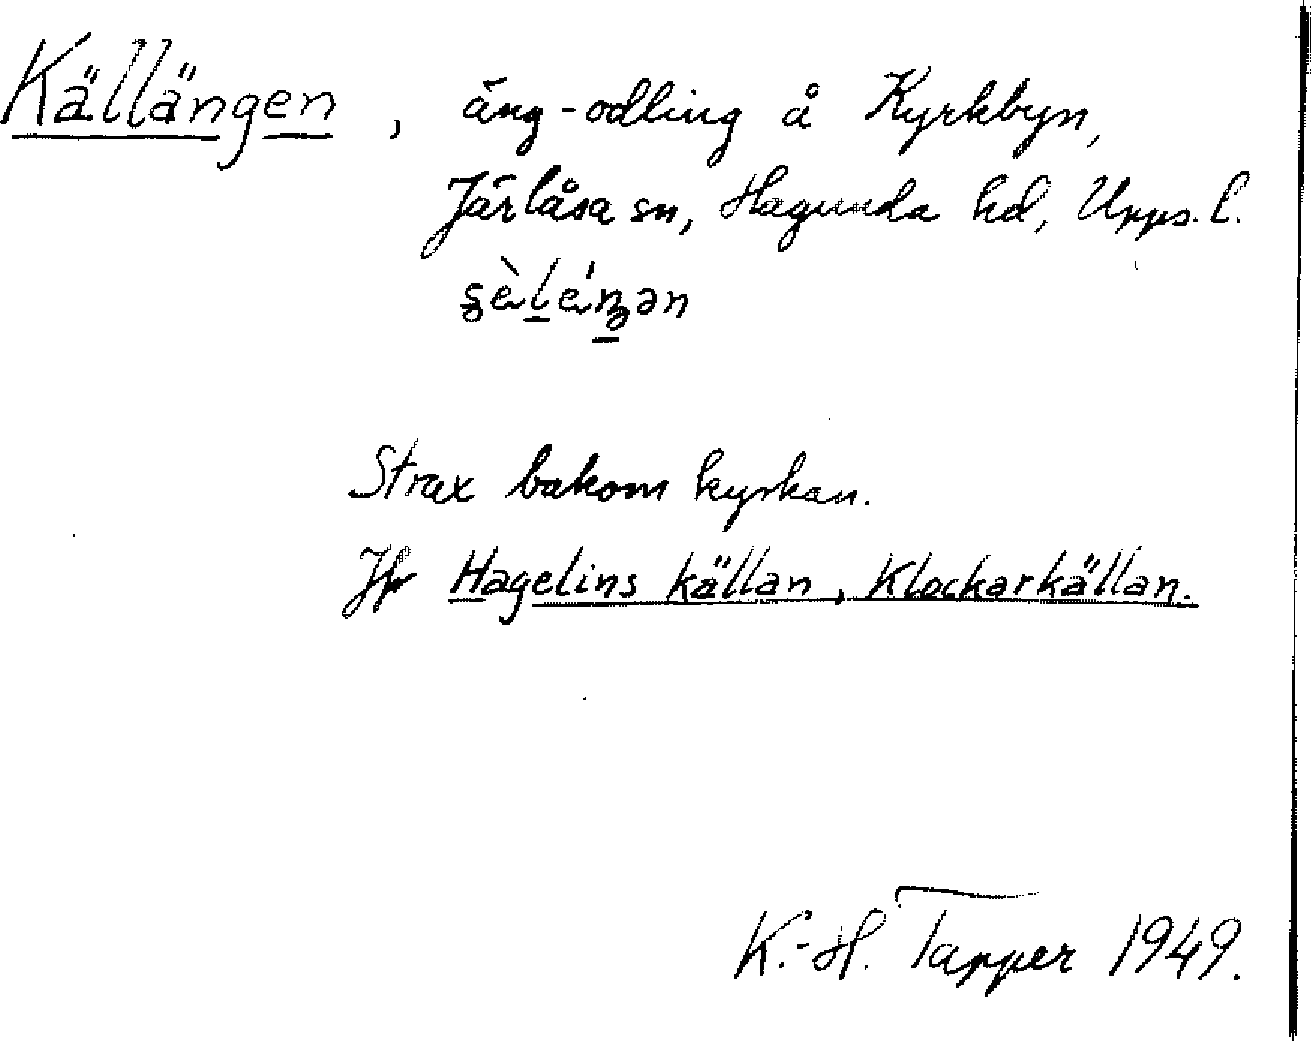 Källängen, äng-odling å Kyrkbyn,
Järlåsa sn, Hagunda hd, Upps. l.
Strax bakom kyrkan.
Jfr Hagelins källan, Klockarkällan.
K.-H. Tapper 1949.